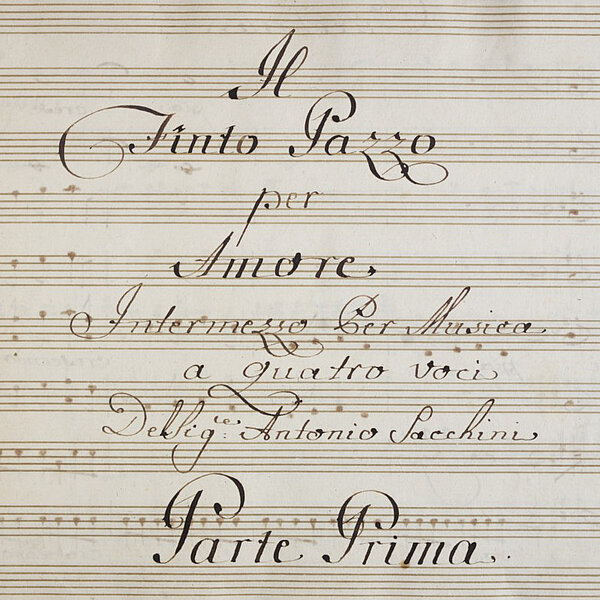 Il
Finto Pazzo
per
Amore.
Intermezzo Per Musica
a quatro voci
Del Sig.re Antonio Sacchini
Parte Prima.